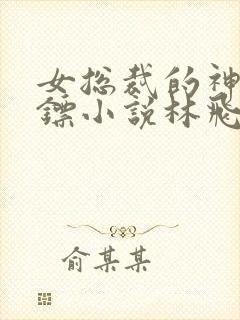 女总裁的神
镖小说林飛
俞某某